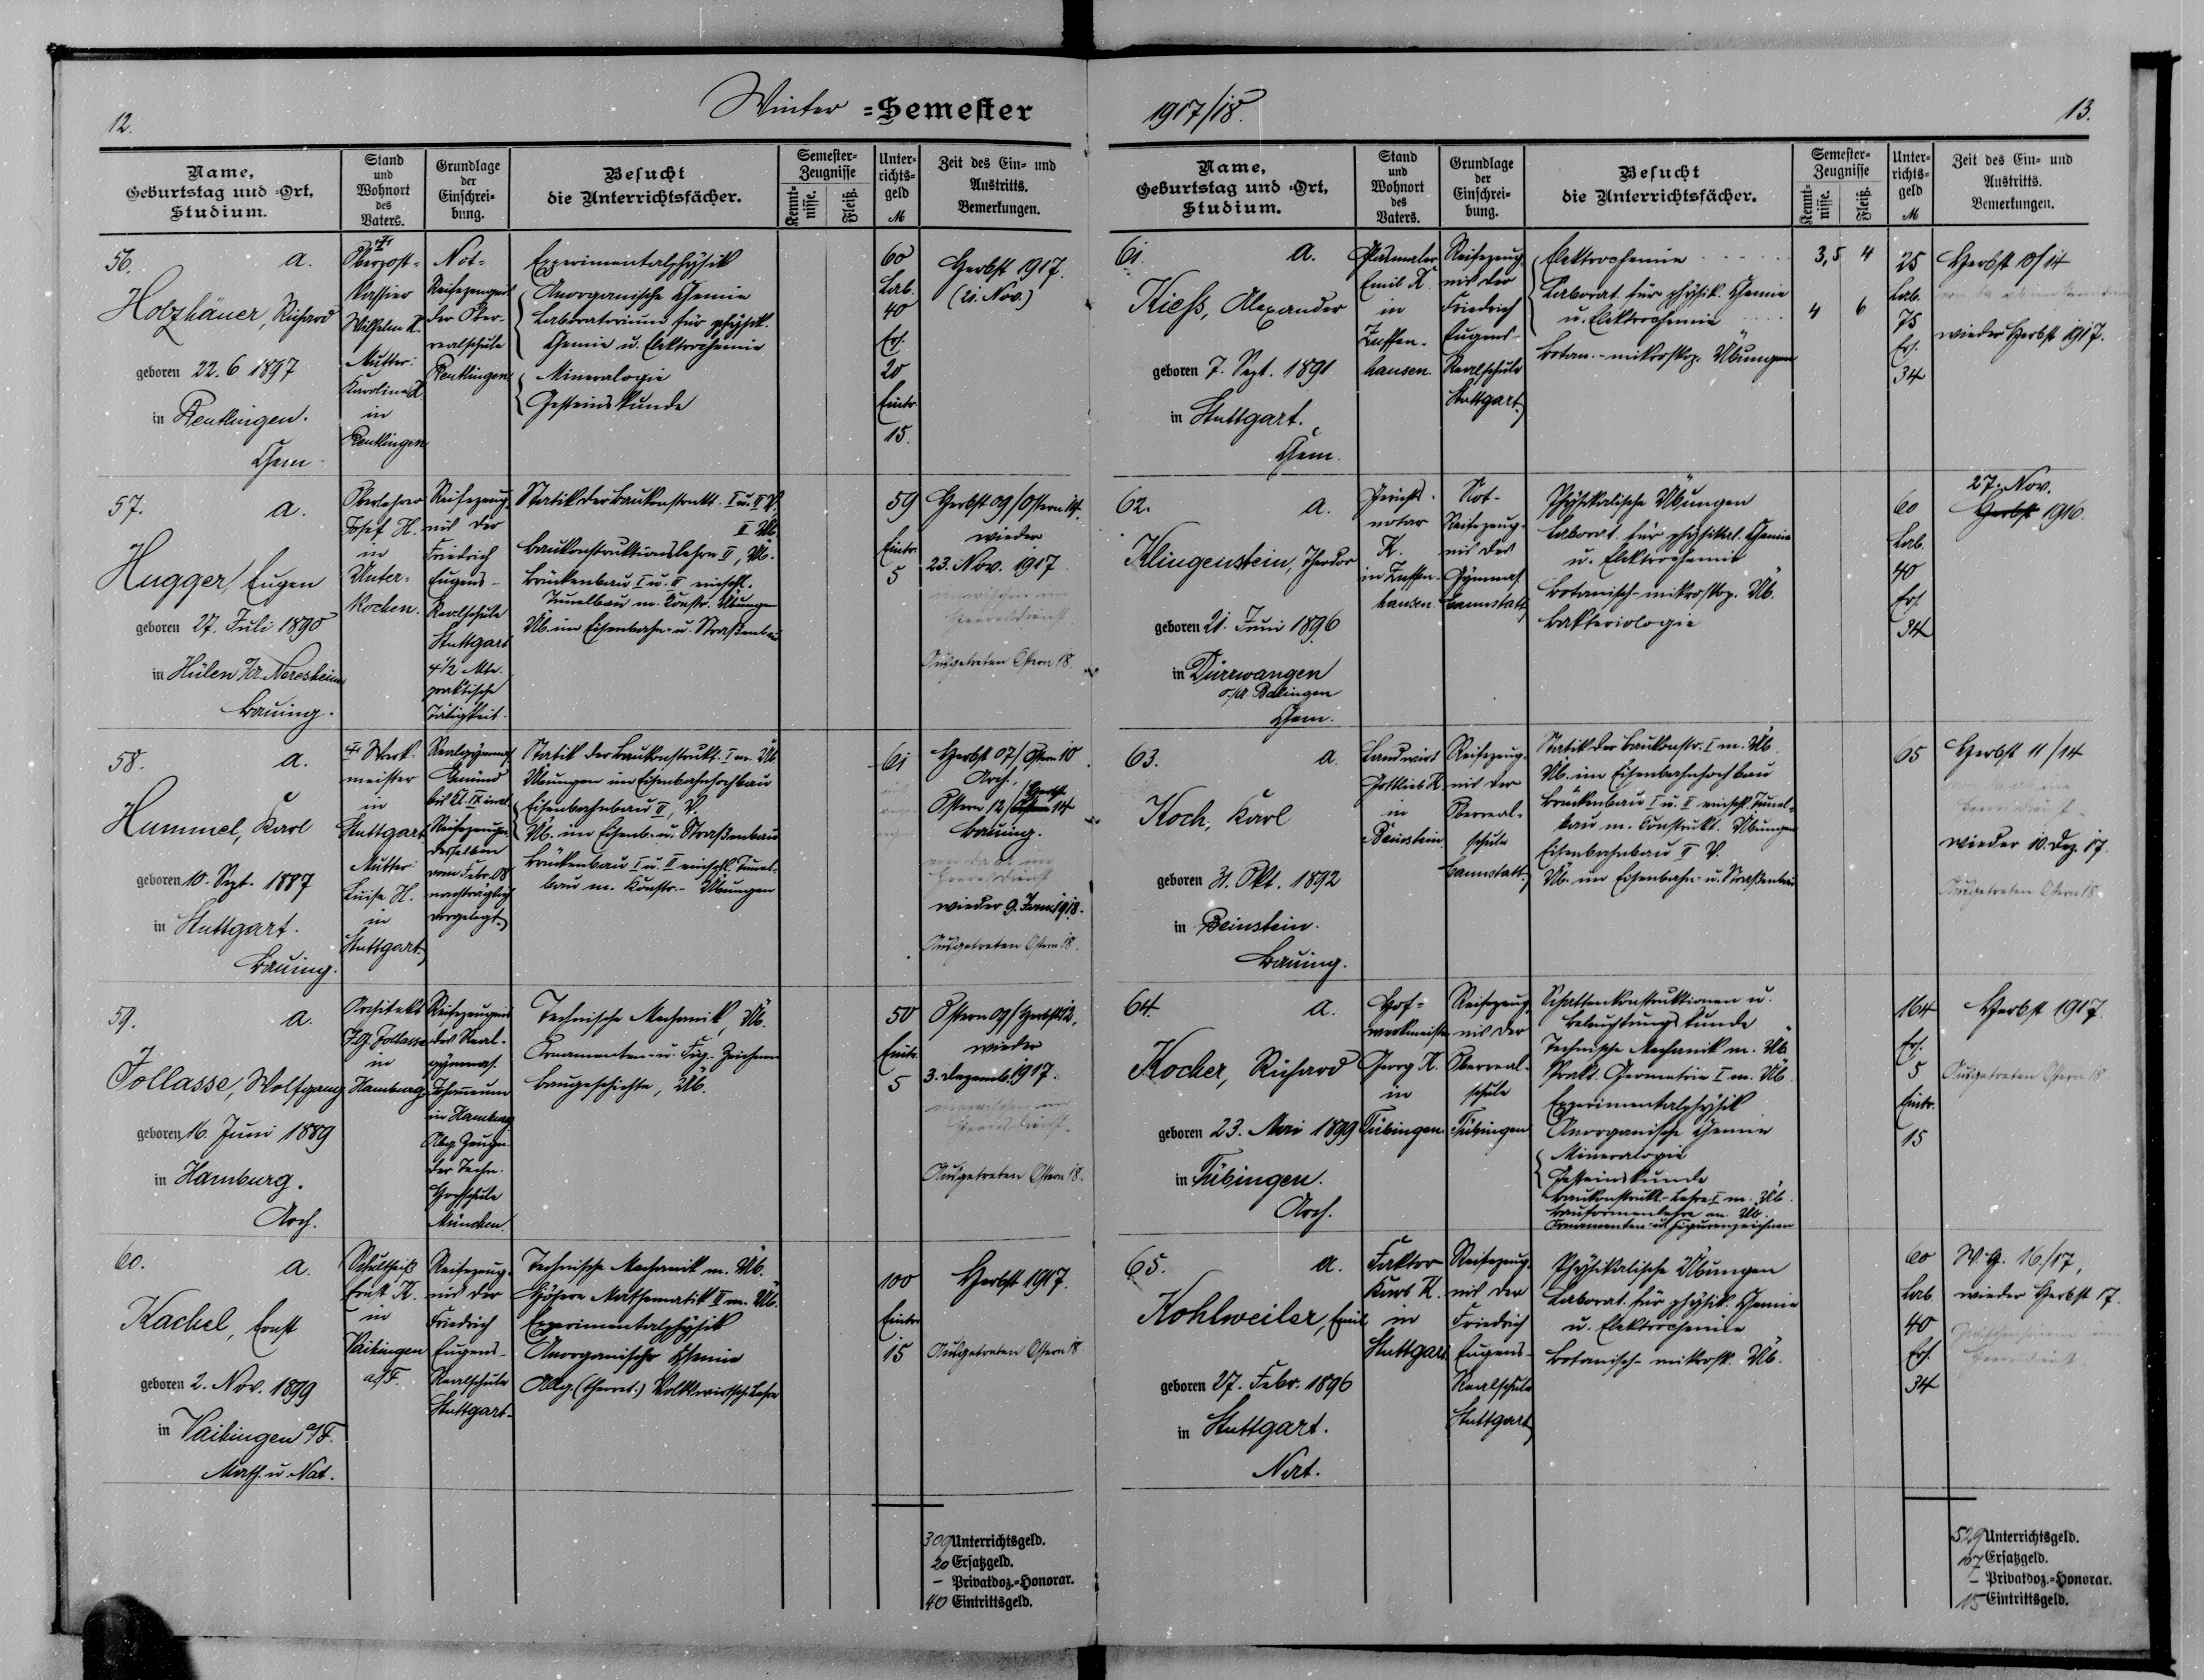 12.
Winter =Semester
Name,
Geburtstag und =Ort,
Studium.
Stand
und
Wohnort
des
Vaters.
Grundlage
der
Einschrei-
bung.
Besucht
die Unterrichtsfächer.
Semester-
Zeugnisse
Kennt-
nisse.
Fleiß.
Unter-
richts-
geld
M
Zeit des Ein- und
Austritts.
Bemerkungen.
56. a.
Holzhäuer, Richard
geboren 22. 6 1897
in Reutlingen.
Chem.
Oberpost-
kassier
Wilhelm H.
Mutter:
Karoline H
in
Reutlingen
Not-
Reifezeugnis
der Ober-
realschule
Reutlingen
Experimentalphysik
Anorganische Chemie
Laboratorium für physik.
Chemie u. Elektrochemie
Mineralogie
Gesteinskunde
60
Lab.
40
Ers.
20
Eintr.
15.
Herbst 1917.
(21. Nov.)
57. a.
Hugger, Eugen
geboren 27. Juli 1890
in Hülen O/A. Neresheim
Bauing.
Oberlehrer
Josef H.
in
Unter-
kochen.
Reifezeug-
nis der
Friedrich
Eugens-
Realschule
Stuttgart
4 1/2 Mte.
praktische
Tätigkeit.
Statik der Baukonstrukt. I u. II V.
II Üb.
Baukonstruktionslehre II, Üb.
Brückenbau I u. II einschl.
Tunelbau m. Konstr. Übungen
Üb. im Eisenbahn- u. Straßenbau
59
Eintr.
5
Herbst 09/Ostern 14.
wieder
23. Nov. 1917.
Heeresdienst
Ausgetreten Ostern 18.
58. a.
Hummel, Karl
geboren 10. Sept. 1887
in Stuttgart.
Bauing.
Werk-
meister
in
Stuttgart
Mutter:
Luise H.
in
Stuttgart
Realgymnas.
Gmünd
bis Kl. IX incl.
Reifezeugnis
desselben
vom Febr. 08
nachträglich
vorgelegt.
Statik der Baukonstrukt. I m. Üb
Übungen im Eisenbahnhochbau
Eisenbahnbau II, V.
Üb. im Eisenb.- u. Straßenbau
Brückenbau I u. II einschl. Tunel-
bau m. Konstr.- Übungen
61
Herbst 07/Ostern 10
Arch.
Herbst
Ostern 12/Ostern 14
Bauing.
von da ab im
Heeresdienst
wieder 9. Jan. 1918.
Ausgetreten Ostern 18.
59. a.
Jollasse, Wolfgang
geboren 16. Juni 1889
in Hamburg.
Arch.
Architekt
J. G. Jollasse
in
Hamburg
Reifezeugnis
des Real-
gymnas.
Johanneum
in Hamburg
Abg. Zeugn.
der Techn.
Hochschule
München.
Technische Mechanik, Üb.
Ornamenten- u. Fig.- Zeichnen
Baugeschichte, Üb.
50
Eintr.
5
Ostern 09/Herbst 12,
wieder
3. Dezemb. 1917.
inzwischen im
Heeresdienst.
Ausgetreten Ostern 18.
60. a.
Kachel, Ernst
geboren 2. Nov. 1899
in Vaihingen a/F.
Math. u. Nat.
Schultheiß
Ernst K.
in
Vaihingen
a/F.
Reifezeug-
nis der
Friedrich
Eugens-
Realschule
Stuttgart.
Technische Mechanik m. Üb.
Höhere Mathematik II m. Üb.
Experimentalphysik
Anorganische Chemie
Allg. (theoret.) Volkswirtsch. Lehre
100
Eintr.
15
Herbst 1917.
Ausgetreten Ostern 18
309 Unterrichtsgeld.
20 Ersatzgeld.
– Privatdoz.=Honorar.
40 Eintrittsgeld.
1917/18.
13.
Name,
Geburtstag und =Ort,
Studium.
Stand
und
Wohnort
des
Vaters.
Grundlage
der
Einschrei-
bung.
Besucht
die Unterrichtsfächer.
Semester-
Zeugnisse
Kennt-
nisse.
Fleiß.
Unter-
richts-
geld
M
Zeit des Ein- und
Austritts.
Bemerkungen.
61. a.
Kieß, Alexander
geboren 7. Sept. 1891
in Stuttgart.
Chem.
Glasmaler
Emil K.
in
Zuffen-
hausen.
Reifezeug-
nis der
Friedrich
Eugens-
Realschule
Stuttgart.
Elektrochemie . . . . . . 3,5 4
Laborat. für physik. Chemie
u. Elektrochemie . . . . 4 6
Botan.-mikroskop. Übungen
25
Lab.
75
Ers.
34
Herbst 10/14
wieder Herbst 1917.
62. a.
Klingenstein, Theodor
geboren 21. Juni 1896
in Dürrwangen
O/A Balingen
Chem.
Gerichts-
notar
K.
in Zuffen-
hausen.
Not-
Reifezeug-
nis des
Gymnas.
Cannstatt
Physikalische Übungen
Laborat. für physikal. Chemie
u. Elektrochemie
Botanisch-mikroskop. Üb.
Bakteriologie
60
Lab.
40
Ers.
34
27. Nov.
Herbst 1916.
63. a.
Koch, Karl
geboren 31. Okt. 1892
in Beinstein.
Bauing.
Landwirt
Gottlieb K.
in
Beinstein
Reifezeug-
nis der
Oberreal-
schule
Cannstatt.
Statik der Baukonstr. I m. Üb.
Üb. im Eisenbahnhochbau
Brückenbau I u. II einschl. Tunel-
bau m. Konstrukt. Übungen
Eisenbahnbau II V.
Üb. im Eisenbahn- u. Straßenbau
65
Herbst 11/14
Heeresdienst.
wieder 10. Dez. 17.
Ausgetreten Ostern 18.
64. a.
Kocher, Richard
geboren 23. Mai 1899
in Tübingen.
Arch.
Hof-
werkmeister
Georg K.
in
Tübingen.
Reifezeug-
nis der
Oberreal-
schule
Tübingen
Schattenkonstruktionen u.
Beleuchtungskunde
Technische Mechanik m. Üb.
Prakt. Geometrie I m. Üb.
Experimentalphysik
Anorganische Chemie
Mineralogie
Gesteinskunde
Baukonstrukt.-Lehre I m. Üb.
Bauformenlehre m. Üb.
Ornamenten- u. Figurenzeichnen
164
Ers.
5
Eintr.
15
Herbst 1917.
Ausgetreten Ostern 18.
65. a.
Kohlweiler, Emil
geboren 27. Febr. 1896
in Stuttgart.
Nat.
Faktor
Karl K.
in
Stuttgart
Reifezeug-
nis der
Friedrich
Eugens-
Realschule
Stuttgart
Physikalische Übungen
Laborat. für physik. Chemie
u. Elektrochemie
Botanisch-mikrosk. Üb.
60
Lab.
40
Ers.
34
W. H. 16/17,
wieder Herbst 17.
Heeresdienst
529 Unterrichtsgeld.
107 Ersatzgeld.
– Privatdoz.=Honorar.
15 Eintrittsgeld.